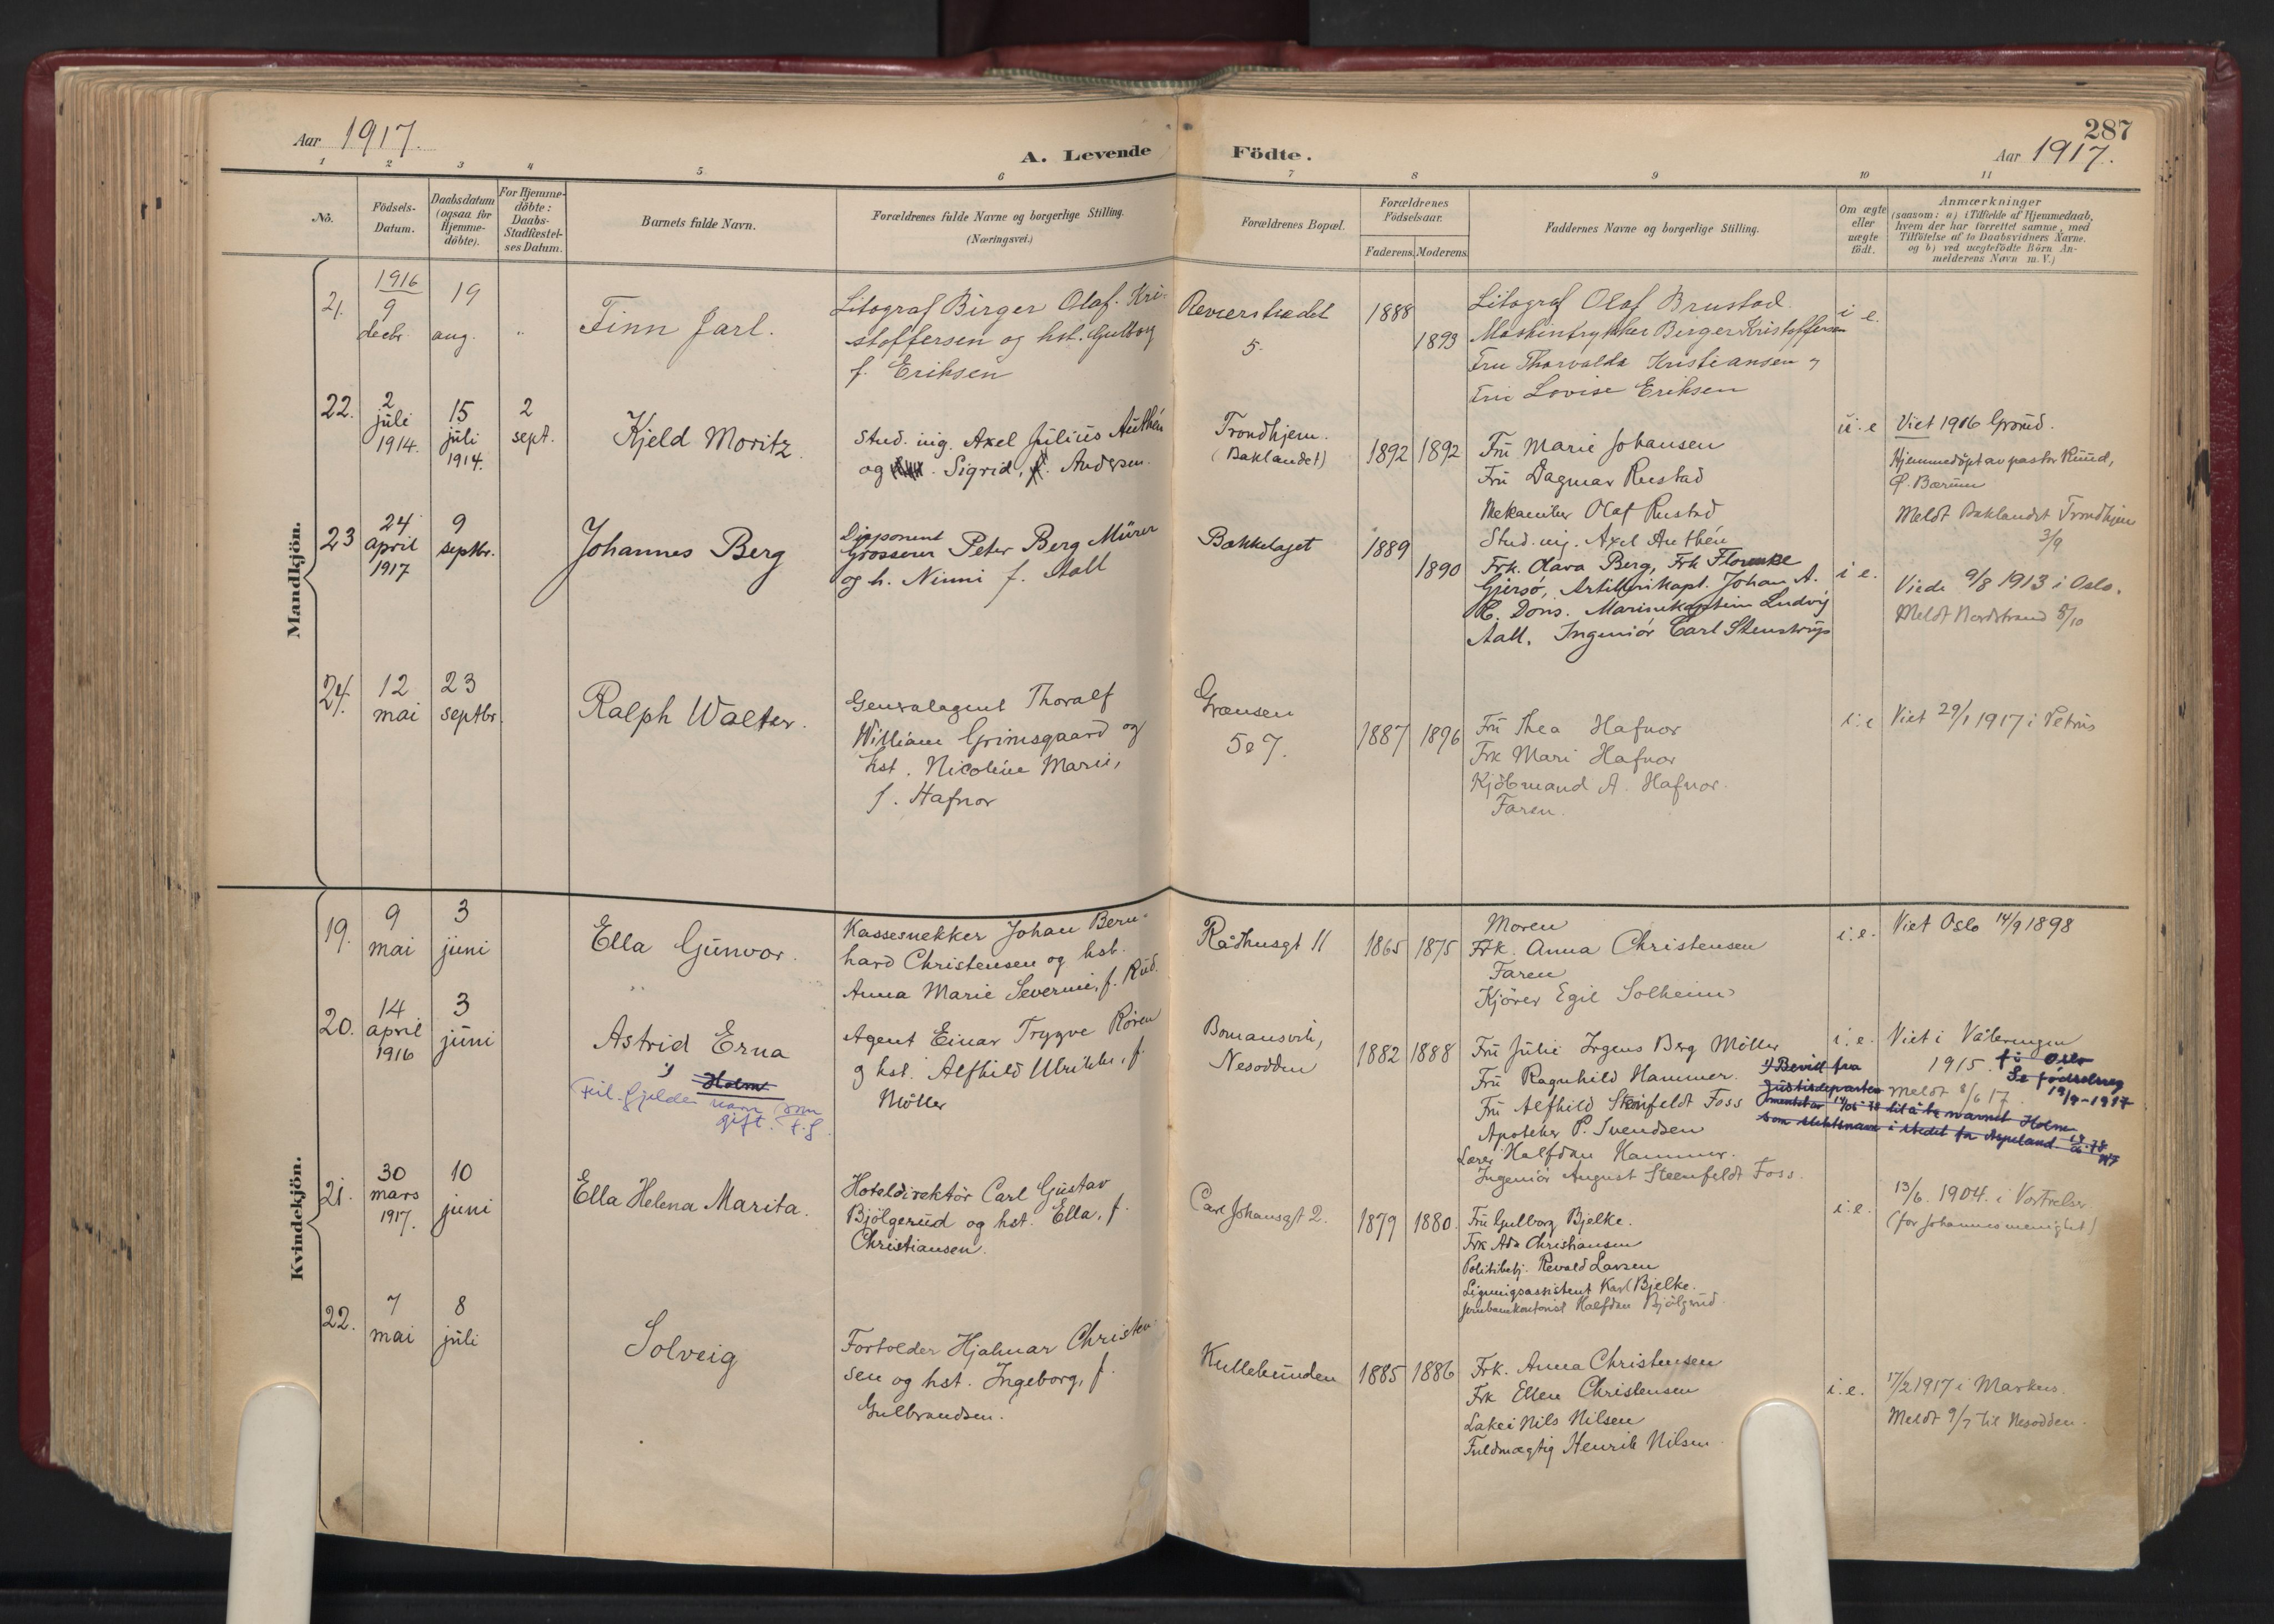 Aar 1917.
A. Levende Födte.
287
Aar 1917.
1 2 3 4 5 6 7 8 9 10 11
No.
Födsels-
Datum.
Daabsdatum
(ogsaa for
Hjemme-
döbte).
For Hjemme-
döbte:
Daabs-
Stadfæstel-
ses Datum.
Barnets fulde Navn.
Forældrenes fulde Navne og borgerlige Stilling.
(Næringsvei.)
Forældrenes Bopæl.
Forældrenes
Födselsaar.
Faderens. Moderens.
Faddernes Navne og borgerlige Stilling.
Om ægte
eller
uægte
födt.
Anmærkninger
(saasom: a) i Tilfælde af Hjemmedaab,
hvem der har forrettet samme, med
Tilföielse af to Daabsvidners Navne.
og b) ved uægtefödte Börn An-
melderens Navn m. V.)
Mandkjön.
21.
1916
9
decbr.
19
aug.
"
Finn Jarl.
Litograf Birger Olaf Kri-
stoffersen og hst. Gulborg
f. Eriksen
Revierstrædet
5.
1888
1893
Litograf Olaf Brustad.
Maskintrykker Birger Kristoffersen
Fru Thorvalda Kristiansen
Fru Lovise Eriksen
i e.
22.
2
juli
1914.
15
juli
1914.
2
sept.
Kjeld Moritz.
Stud. ing. Axel Julius Authén
og Sigrid, f. Andersen.
Trondhjem.
(Baklandet)
1892 1892
Fru Marie Johansen
Fru Dagmar Rustad
Mekaniker Olaf Rustad
Stud. ing. Axel Authén
u. e
Viet 1916 Grønd.
Hjemmedöpt av pastor Ruud,
Ø. Bærum
Meldt Baklandet Trondhjem
3/9
23
24
april
1917
9
septbr.
Johannes Berg
Disponent
Grosserer Peter Berg Mürer
og h. Ninni f. Aall
Bækkelaget
1889
1890
Frk. Olava Berg, Frk
Gjersö, Artillerikapt. Johan A.
Dons. Marinekaptein Ludvig
Aall. Ingeniör Carl Stenstrup
i e.
Viede 9/8 1913 i Oslo.
Meldt Nordstrand 8/10
24.
12
mai
23
septbr.
Ralph Walter.
Generalagent Thoralf
William Grimsgaard og
hst. Nicoline Marie,
f. Hafnor
Grænsen
5 o 7.
1887 1896
Fru Thea Hafnor
Frk Mari Hafnor
Kjöbmand A. Hafnor.
Faren.
i. e
Viet 29/1 1917 i Petrus
Kvindekjön.
19.
9
mai
3
juni
Ella Gunvor.
Kassesnekker Johan Bern-
hard Christensen og hst.
Anna Marie Severine, f. Rud.
Rådhusgt 11
1865 1875
Moren
Frk. Anna Christensen
Faren
Kjörer Egil Solheim
i. e.
Viet Oslo 14/9 1898
20.
14
april
1916
3
juni
Astrid Erna
1) Holm
Feil. Gjelder navn som
gift.
Agent Einar Trygve Røren
og hst. Alfhild Ulrikke, f.
Möller
Bomansvik,
Nesodden
1882 1888
Fru Julie Irgens Berg Möller
Fru Ragnhild Hammer.
Fru Alfhild Stenfeldt Foss
Apoteker P. Svendsen
Lærer Halfdan Hammer.
Ingeniör August Steenfeldt Foss.
i. e.
Viet i Vålerengen
1915. f i Oslo
Se födselsreg
19/9-1917
Meldt 8/6 17.
1) Bevid fra
Justisdeparte
mentet av til å ta navnet Holm
som slektsnavn i stedet for Aspeland.
21.
30
mars
1917.
10
juni
Ella Helena Marita.
Hoteldirektör Carl Gustav
Bjölgerud og hst. Ella, f.
Christiansen.
Carl Johansgt 2.
1879 1880.
Fru Gulborg Bjelke.
Frk Ada Christiansen
Politibetj. Revald Larsen
Ligningsassistent Karl Bjelke.
Jernbanekontorist Halfdan Bjölgerud.
i. e.
13/6. 1904. i Vor Frelser.
(for Johannes menighet)
22.
7
mai
8
juli
Solveig
Fortolder Hjalmar Christen-
sen og hst. Ingeborg, f.
Gulbrandsen.
Kullebunden
1885 1886
Frk. Anna Christensen
Frk Ellen Christensen
Lakei Nils Nilsen
Fuldmægtig Henrik Nilsen
i. e.
17/2 1917 i Markus.
Meldt 9/7 til Nesodden.